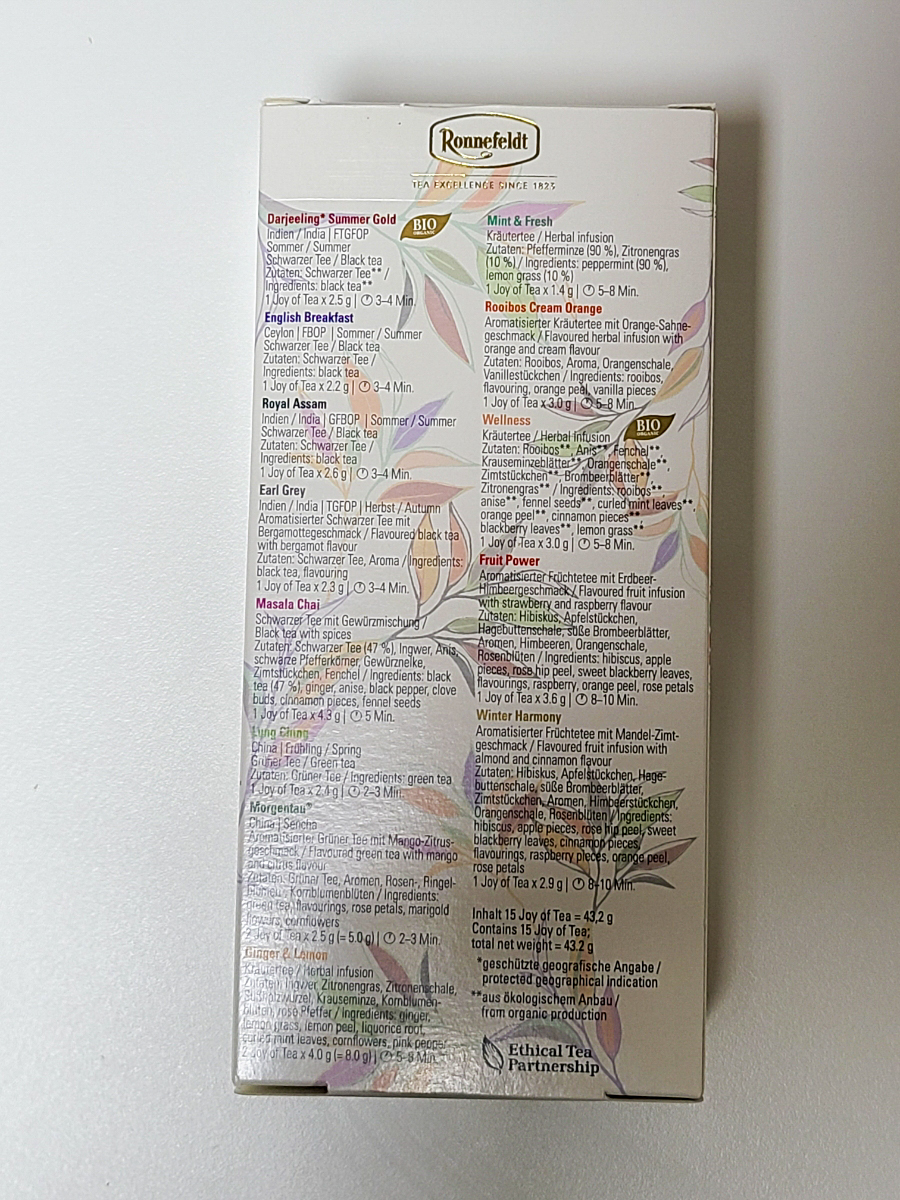 Ronnefeldt
TEA EXCELLENCE SINCE 1823
Darjeeling* Summer Gold
BIO
ORGANIC
Indien / India | FTGFOP
Sommer / Summer
Schwarzer Tee / Black tea
Zutaten: Schwarzer Tee** /
Ingredients: black tea**
1 Joy of Tea x 2.5 g | 3–4 Min.
English Breakfast
Ceylon | FBOP | Sommer / Summer
Schwarzer Tee / Black tea
Zutaten: Schwarzer Tee /
Ingredients: black tea
1 Joy of Tea x 2.2 g | 3–4 Min.
Royal Assam
Indien / India | GFBOP | Sommer / Summer
Schwarzer Tee / Black tea
Zutaten: Schwarzer Tee /
Ingredients: black tea
1 Joy of Tea x 2.6 g | 3–4 Min.
Earl Grey
Indien / India | TGFOP | Herbst / Autumn
Aromatisierter Schwarzer Tee mit
Bergamottegeschmack / Flavoured black tea
with bergamot flavour
Zutaten: Schwarzer Tee, Aroma / Ingredients:
black tea, flavouring
1 Joy of Tea x 2.3 g | 3–4 Min.
Masala Chai
Schwarzer Tee mit Gewürzmischung /
Black tea with spices
Zutaten: Schwarzer Tee (47 %), Ingwer, Anis,
schwarze Pfefferkörner, Gewürznelke,
Zimtstückchen, Fenchel / Ingredients: black
tea (47 %), ginger, anise, black pepper, clove
buds, cinnamon pieces, fennel seeds
1 Joy of Tea x 4.3 g | 5 Min.
Lung Ching
China | Frühling / Spring
Grüner Tee / Green tea
Zutaten: Grüner Tee / Ingredients: green tea
1 Joy of Tea x 2.4 g | 2–3 Min.
Morgentau®
China | Sencha
Aromatisierter Grüner Tee mit Mango-Zitrus-
geschmack / Flavoured green tea with mango
and citrus flavour
Zutaten: Grüner Tee, Aromen, Rosen-, Ringel-
blumen-, Kornblumenblüten / Ingredients:
green tea, flavourings, rose petals, marigold
flowers, cornflowers
2 Joy of Tea x 2.5 g (= 5.0 g) | 2–3 Min.
Ginger & Lemon
Kräutertee / Herbal infusion
Zutaten: Ingwer, Zitronengras, Zitronenschale,
Süßholzwurzel, Krauseminze, Kornblumen-
blüten, rosa Pfeffer / Ingredients: ginger,
lemon grass, lemon peel, liquorice root,
curled mint leaves, cornflowers, pink pepper
2 Joy of Tea x 4.0 g (= 8.0 g) | 5–8 Min.
Mint & Fresh
Kräutertee / Herbal infusion
Zutaten: Pfefferminze (90 %), Zitronengras
(10 %) / Ingredients: peppermint (90 %),
lemon grass (10 %)
1 Joy of Tea x 1.4 g | 5–8 Min.
Rooibos Cream Orange
Aromatisierter Kräutertee mit Orange-Sahne-
geschmack / Flavoured herbal infusion with
orange and cream flavour
Zutaten: Rooibos, Aroma, Orangenschale,
Vanillestückchen / Ingredients: rooibos,
flavouring, orange peel, vanilla pieces
1 Joy of Tea x 3.0 g | 5–8 Min.
Wellness
BIO
ORGANIC
Kräutertee / Herbal infusion
Zutaten: Rooibos**, Anis**, Fenchel**,
Krauseminzeblätter**, Orangenschale**,
Zimtstückchen**, Brombeerblätter**,
Zitronengras** / Ingredients: rooibos**,
anise**, fennel seeds**, curled mint leaves**,
orange peel**, cinnamon pieces**,
blackberry leaves**, lemon grass**
1 Joy of Tea x 3.0 g | 5–8 Min.
Fruit Power
Aromatisierter Früchtetee mit Erdbeer-
Himbeergeschmack / Flavoured fruit infusion
with strawberry and raspberry flavour
Zutaten: Hibiskus, Apfelstückchen,
Hagebuttenschale, süße Brombeerblätter,
Aromen, Himbeeren, Orangenschale,
Rosenblüten / Ingredients: hibiscus, apple
pieces, rose hip peel, sweet blackberry leaves,
flavourings, raspberry, orange peel, rose petals
1 Joy of Tea x 3.6 g | 8–10 Min.
Winter Harmony
Aromatisierter Früchtetee mit Mandel-Zimt-
geschmack / Flavoured fruit infusion with
almond and cinnamon flavour
Zutaten: Hibiskus, Apfelstückchen, Hage-
buttenschale, süße Brombeerblätter,
Zimtstückchen, Aromen, Himbeerstückchen,
Orangenschale, Rosenblüten / Ingredients:
hibiscus, apple pieces, rose hip peel, sweet
blackberry leaves, cinnamon pieces,
flavourings, raspberry pieces, orange peel,
rose petals
1 Joy of Tea x 2.9 g | 8–10 Min.
Inhalt 15 Joy of Tea = 43,2 g
Contains 15 Joy of Tea;
total net weight = 43.2 g
*geschützte geografische Angabe /
protected geographical indication
**aus ökologischem Anbau /
from organic production
Ethical Tea
Partnership